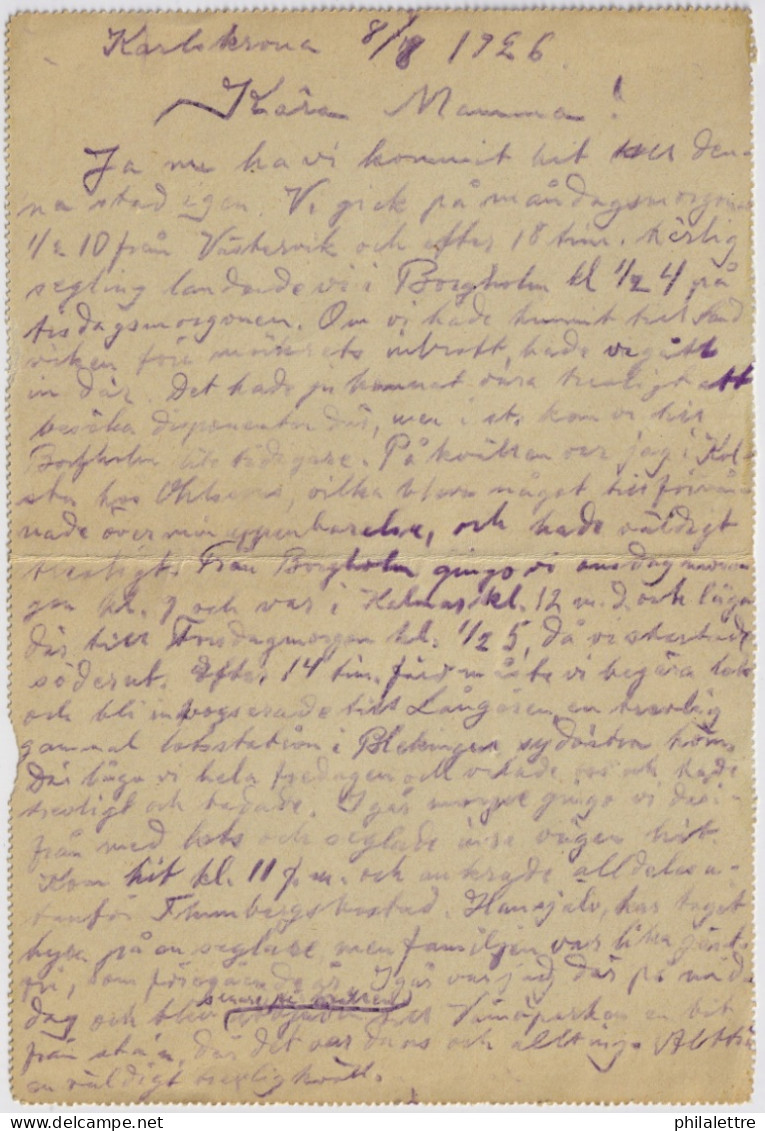 Karlskrona 8/8 1926
Kära Mamma!
Ja nu ha vi kommit hit till den-
na stad igen. Vi gick på måndagsmorgonen
1/2 10 från Västervik och efter 18 tim. härlig
segling landade vi i Borgholm kl 1/2 4 på
tisdagsmorgonen. Om vi hade hunnit till Sand
viken före mörkrets inbrott, hade vi gått
in där. Det hade ju kommat vara trevligt att
besöka disponenten där, men i st. kom vi till
Borgholm lite tidigare. På kvällen var jag i Kol-
sta hos Ohlsons, vilka blevo något till förvå-
nade över min uppenbarelse, och hade väldigt
trevligt. Från Borgholm gingo vi onsdagsmorron
gen kl. 9 och var i Kalmar kl. 12 m.d. och lågo
där till Torsdagmorgon kl. 1/2 5, då vi startade
söderut. Efter 14 tim. färd måste vi begära lots
och bli inbogserade till Långören, en trevlig
gammal lotsstation i Blekinges sydöstra hörn.
Där lågo vi hela fredagen och vilade oss och hade
trevligt och badade. I går morse gingo vi däri-
från med lots och seglade inre vägen hit.
Kom hit kl. 11 f.m. och ankrade alldeles u-
tanför Thunbergs bostad. Han själv, har tagit
hyra på en seglare, men familjen var lika gäst-
fri, som föregående år. Igår var jag där på mid-
dag och blev senare på kvällen till Vämöparken en bit
från stan, där det var dans och allting. Alltså
en väldigt trevlig kväll.
philalettre